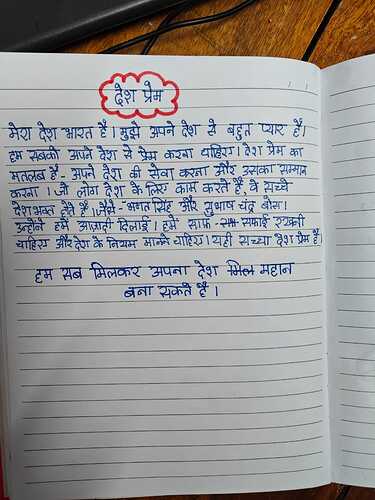 देश प्रेम
मेरा देश भारत है। मुझे अपने देश से बहुत प्यार है।
हम सबको अपने देश से प्रेम करना चाहिए। देश प्रेम का
मतलब है - अपने देश की सेवा करना और उसका सम्मान
करना। जो लोग देश के लिए काम करते हैं, वे सच्चे
देशभक्त होते हैं। जैसे - भगत सिंह और सुभाष चंद्र बोस।
उन्होंने हमें आज़ादी दिलाई। हमें साफ़ - सफ़ाई रखनी
चाहिए और देश के नियम मानने चाहिए। यही सच्चा देश प्रेम है।
हम सब मिलकर अपना देश महान
बना सकते हैं।